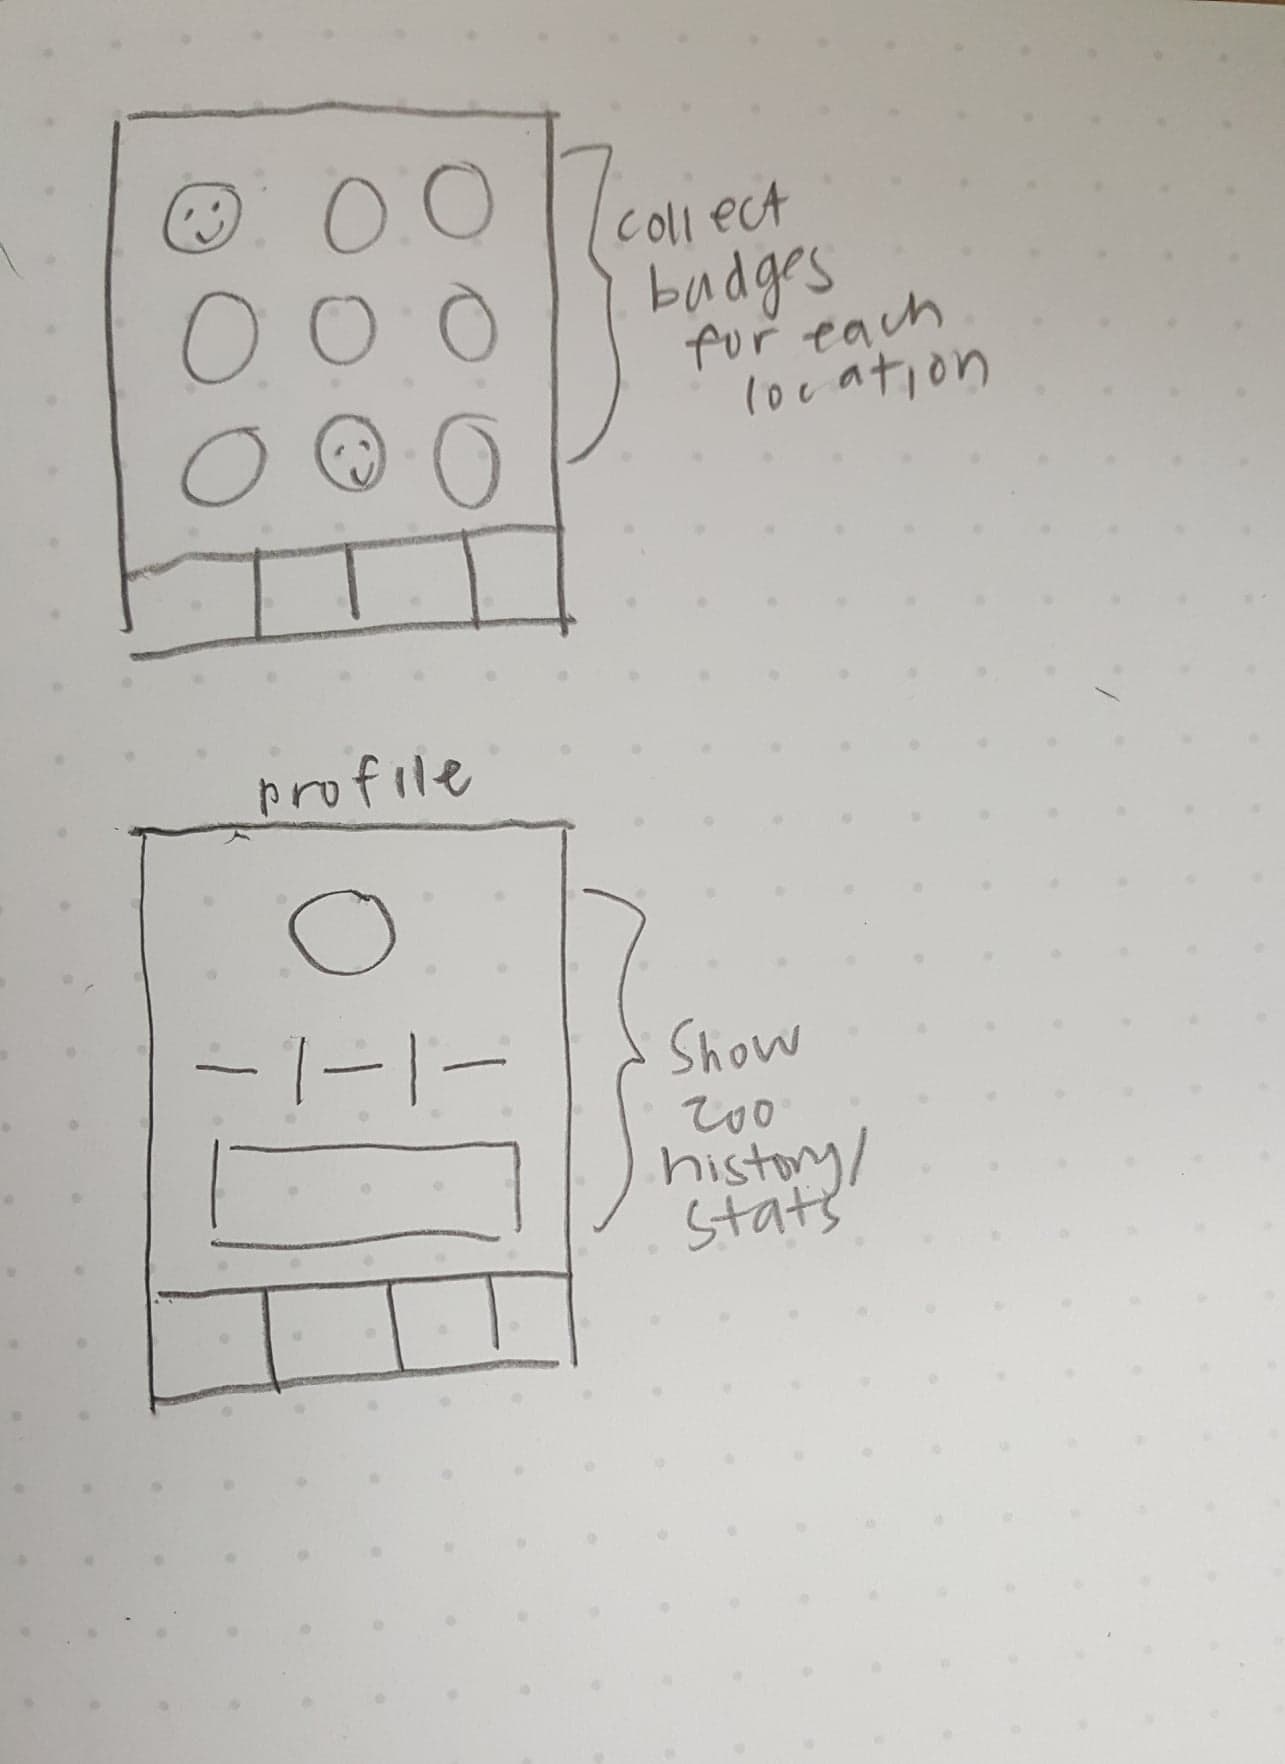 collect
badges
for each
location
profile
Show
zoo
history/
stats